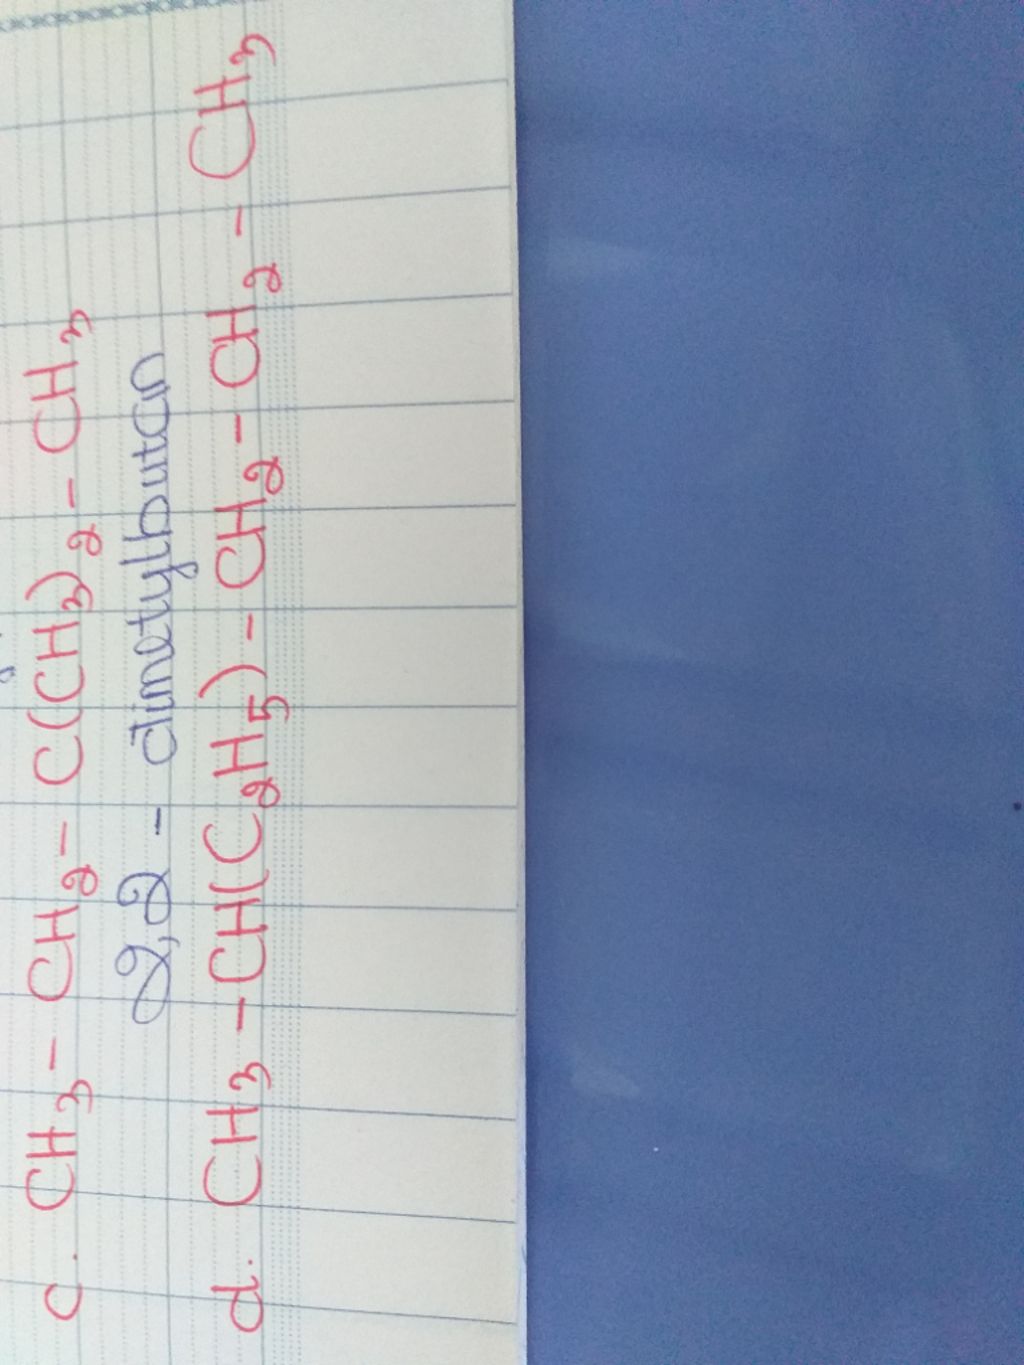 c. CH₃ - CH₂ - C(CH₃)₂ - CH₃
2,2 - dimetylbutan
d. CH₃ - CH(C₂H₅) - CH₂ - CH₂ - CH₃